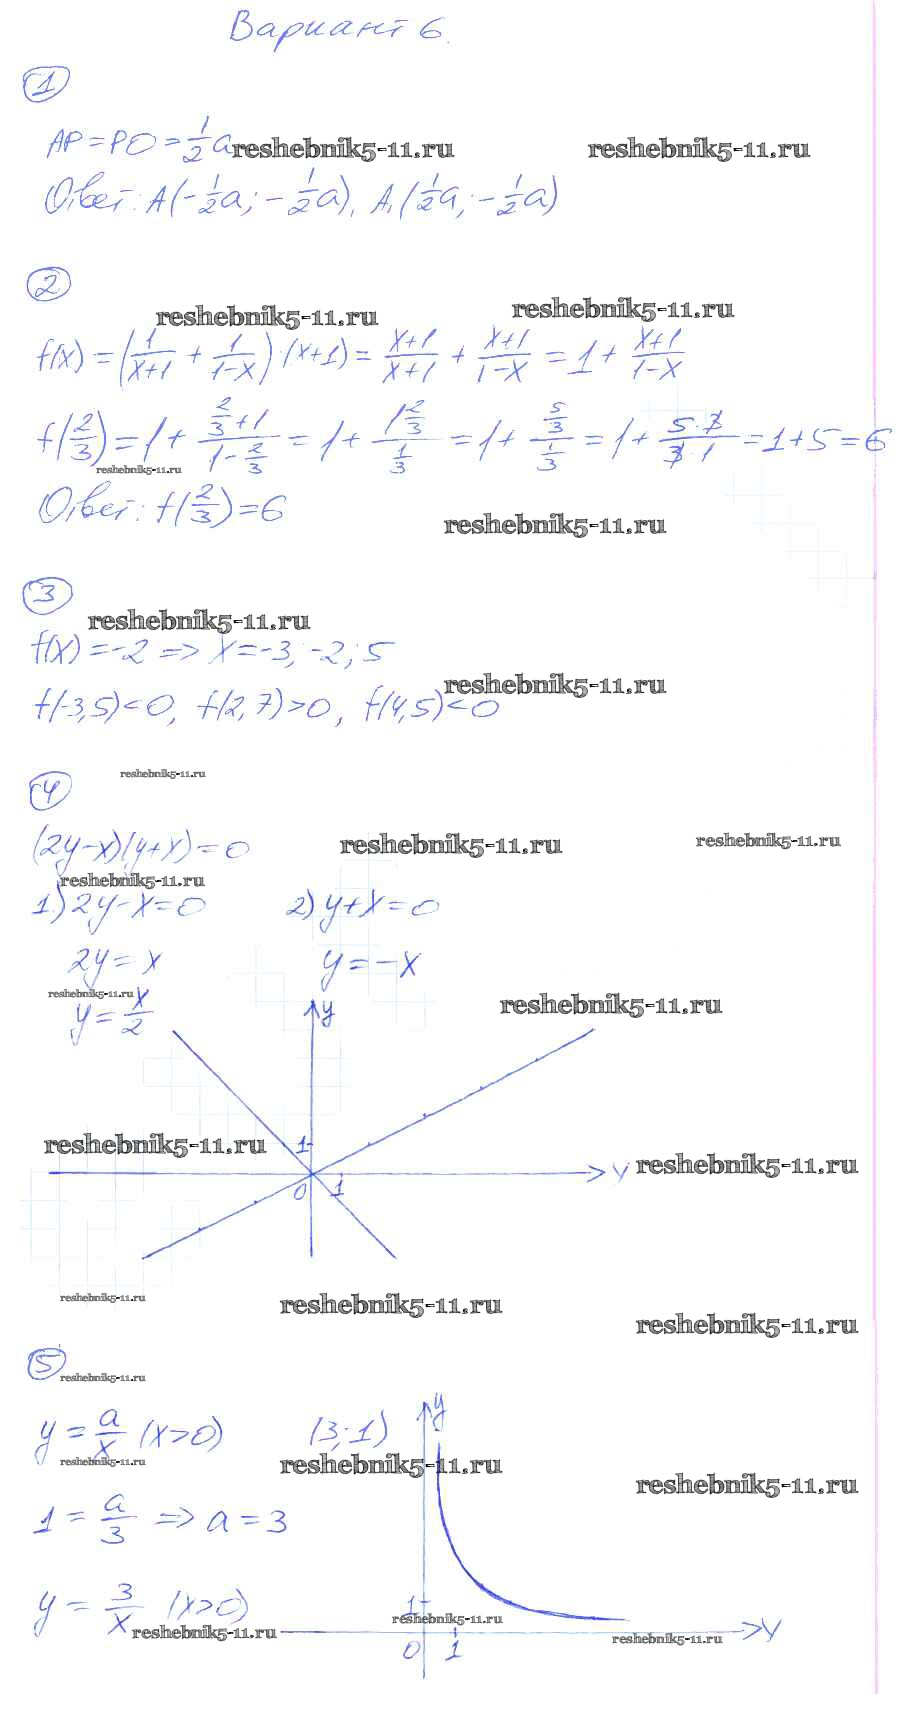 Вариант 6.
1
AP = PO = 1/2 a reshebnik5-11.ru reshebnik5-11.ru
Ответ: A(-1/2 a; -1/2 a), A₁(1/2 a; -1/2 a)
2
reshebnik5-11.ru reshebnik5-11.ru
f(x) = (1/(x+1) + 1/(1-x)) · (x+1) = (x+1)/(x+1) + (x+1)/(1-x) = 1 + (x+1)/(1-x)
f(2/3) = 1 + (2/3 + 1)/(1 - 2/3) = 1 + (1 2/3)/(1/3) = 1 + (5/3)/(1/3) = 1 + (5·3)/(3·1) = 1 + 5 = 6
reshebnik5-11.ru
Ответ: f(2/3) = 6
reshebnik5-11.ru
3
reshebnik5-11.ru
f(x) = -2 => x = -3; -2; 5
reshebnik5-11.ru
f(-3,5) < 0, f(2,7) > 0, f(4,5) < 0
reshebnik5-11.ru
4
(2y-x)(y+x) = 0 reshebnik5-11.ru reshebnik5-11.ru
reshebnik5-11.ru
1.) 2y-x=0 2) y+x=0
2y = x y = -x
reshebnik5-11.ru reshebnik5-11.ru
y = x/2 y
reshebnik5-11.ru 1
y reshebnik5-11.ru
0 1
reshebnik5-11.ru reshebnik5-11.ru
reshebnik5-11.ru
5
reshebnik5-11.ru
y
y = a/x (x>0) (3;1)
reshebnik5-11.ru reshebnik5-11.ru
reshebnik5-11.ru
1 = a/3 => a = 3
y = 3/x (x>0) 1
reshebnik5-11.ru
reshebnik5-11.ru y
reshebnik5-11.ru
0 1